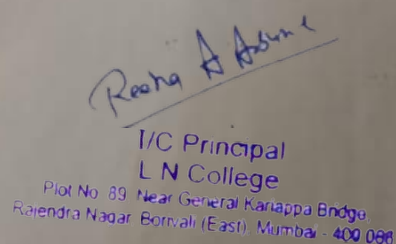 Reena A
I/C Principal
L N College
Plot No 89 Near General Kariappa Bridge,
Rajendra Nagar Borivali (East), Mumbai - 400 066